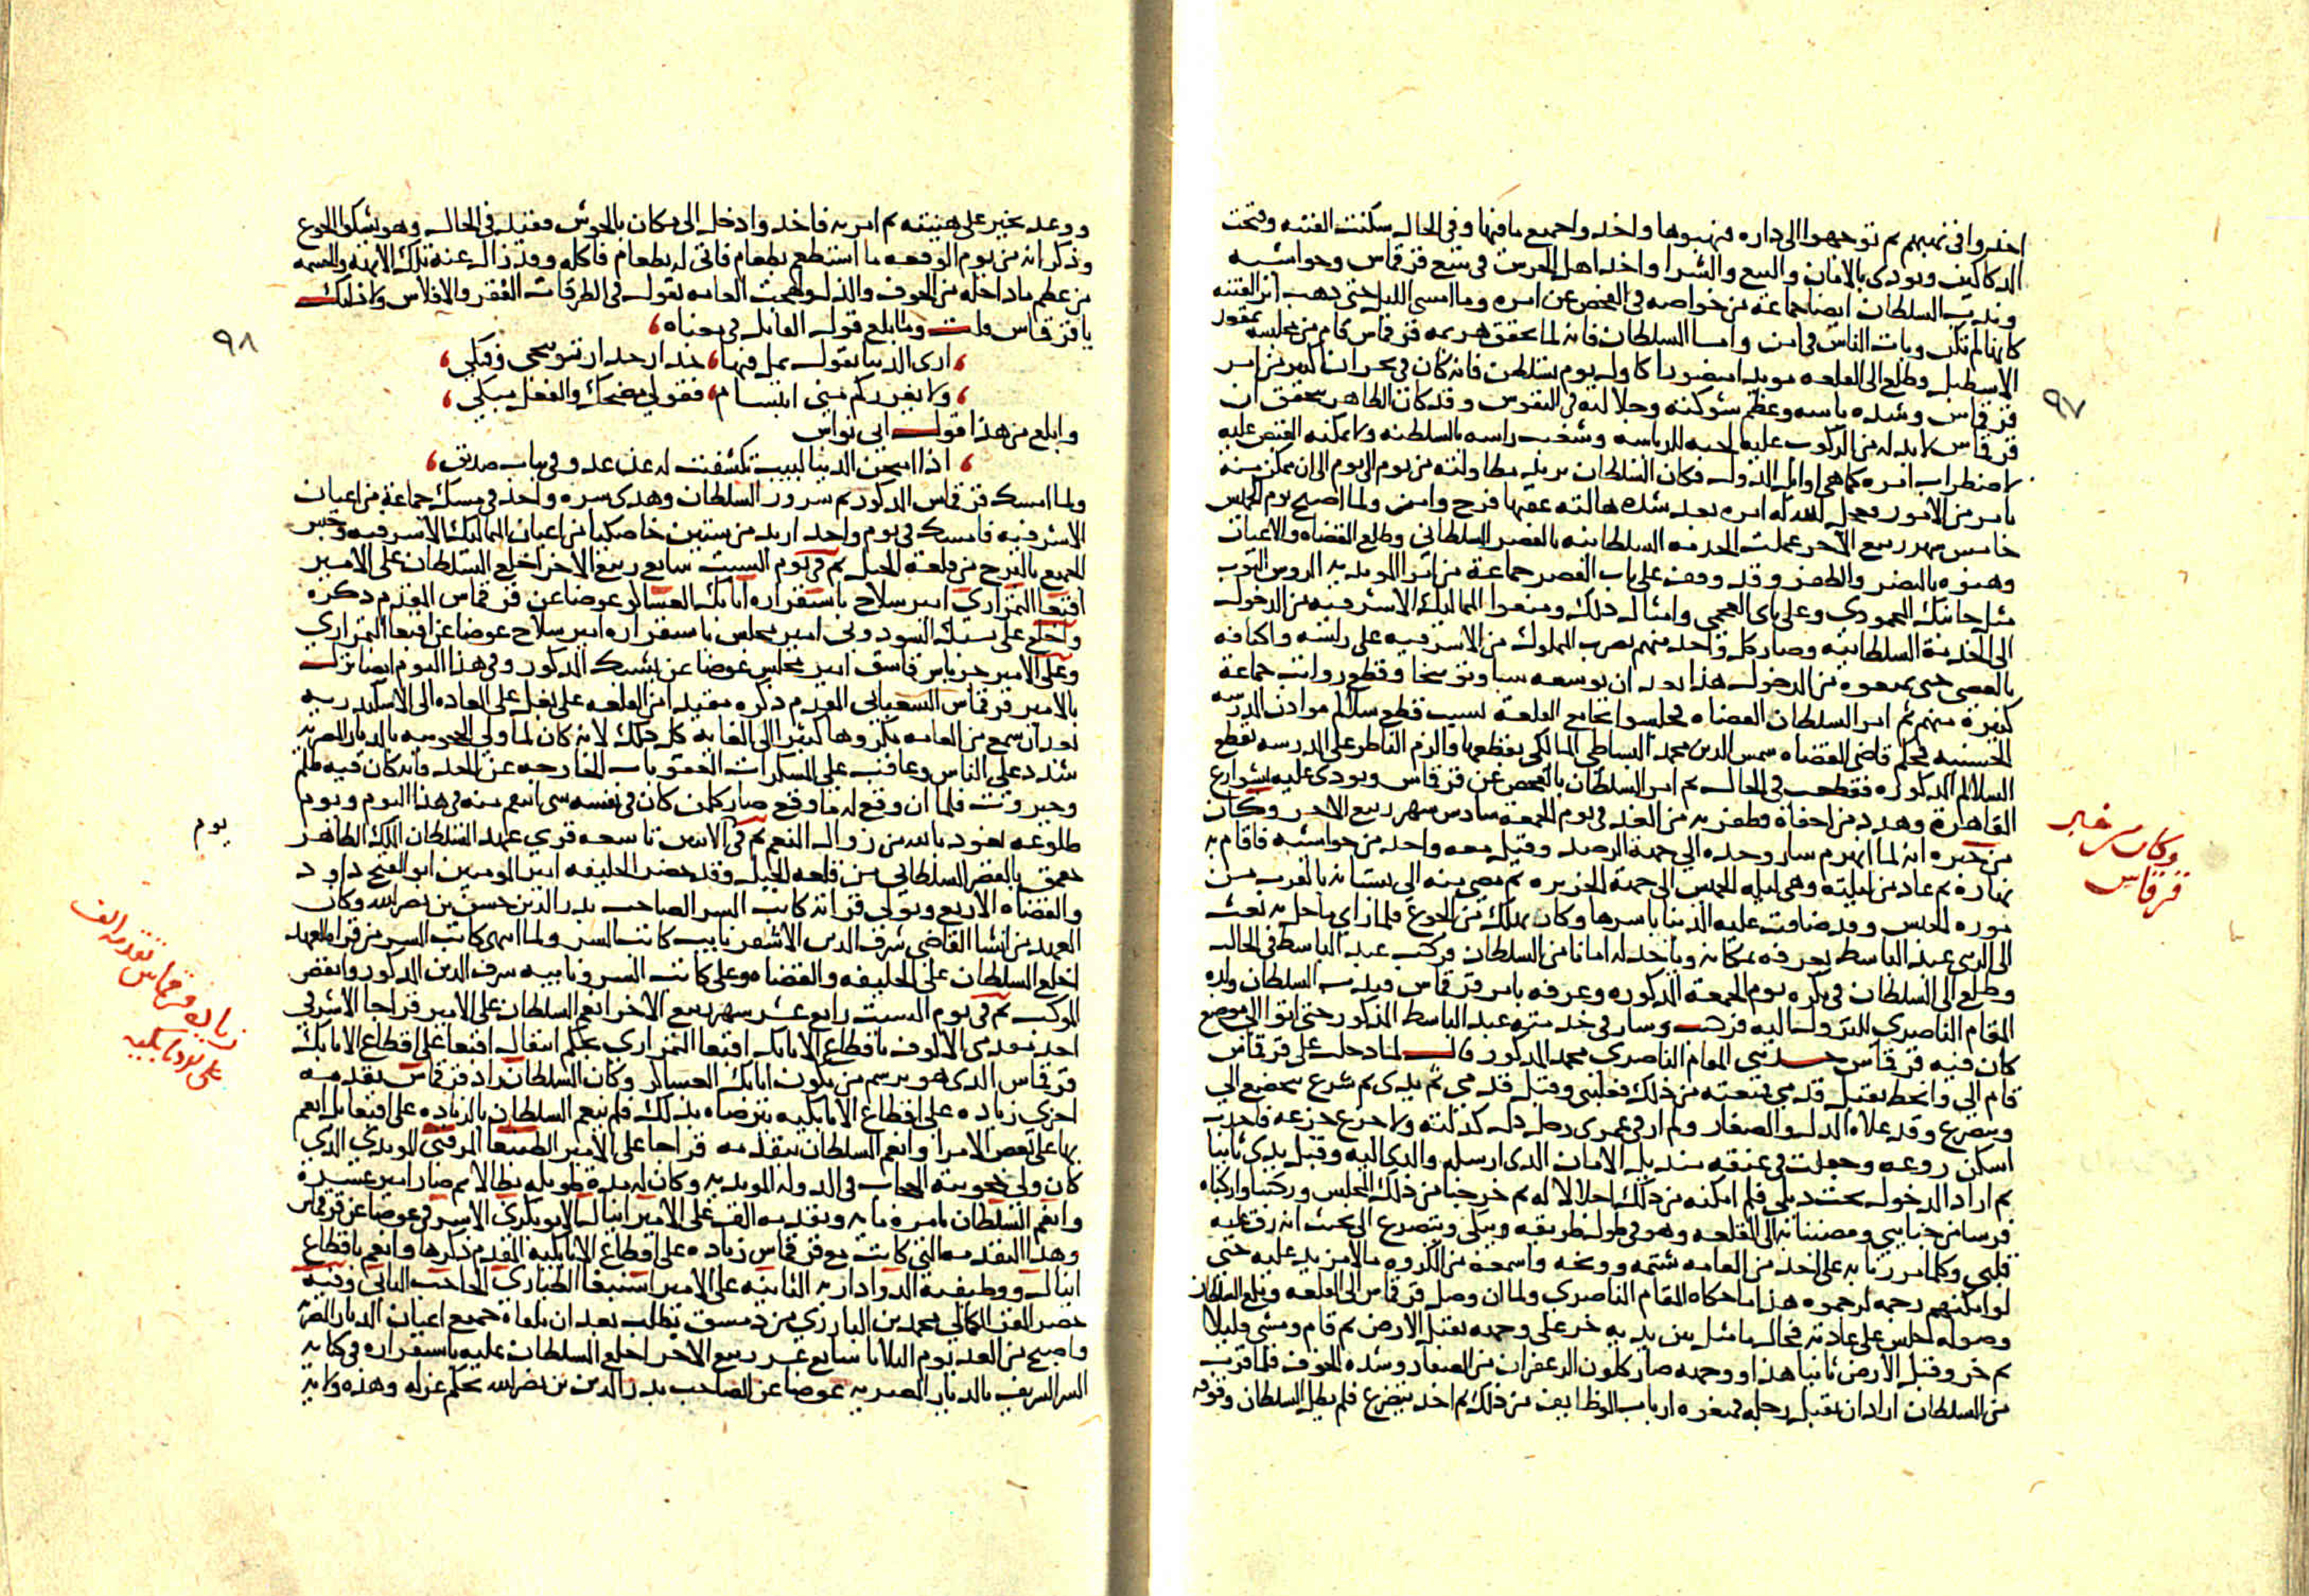 اخذوا في نهبهم ثم توجهوا الى داره فنهبوها واخذوا جميع ما فيها وفي الحال سكنت الفتنه وفتحت
الدكاكين ونودي بالامان والبيع والشرا واخذ اهل الحرس في تتبع قرقماس وحواشيه
وندب السلطان ايضا جماعة من خواصه في الفحص عن امره وما امسى الليل حتى ذهب اثر الفتنه
كانها لم تكن وبات الناس في امن واما السلطان فانه لما تحقق هزيمة قرقماس قام من مجلسه بمقعد
الاسطبل وطلع الى القلعه مويدا منصورا كاول يوم تسلطن فانه كان في بحران كبير من امر
قرقماس وشده باسه وعظم شوكته وجلالته في النفوس وقد كان الظاهر يتحقق ان
قرقماس لا بد له من الركوب عليه لحبه للرياسه وشغب راسه بالسلطنه ولا يمكنه القبض عليه
لاضطراب امره كما هي اوايل الدول فكان السلطان يريد مطاولته من يوم الى يوم الى ان يمكن منه
بامر من الامور فعجل الله له امره بعد شده هالته عقبها فرج وامن ولما اصبح يوم الخميس
خامس شهر ربيع الاخر عملت الخدمه السلطانيه بالقصر السلطاني وطلع القضاه والاعيان
وهنوه بالنصر والظفر وقد وقف على باب القصر جماعة من امرا المويديه الروس النوب
مثل جانبك المحمودي وعلي باي العجمي وامثال ذلك ومنعوا المماليك الاشرفيه من الدخول
الى الخدمة السلطانيه وصار كل واحد منهم يضرب المملوك من الاشرفيه على راسه واكتافه
بالعصي حتى يمنعوه من الدخول هذا بعد ان يوسعه سبا وتوبيخا وقطع رواتب جماعة
كثيرة منهم ثم امر السلطان القضاه فجلسوا بجامع القلعة بسبب قطع سلالم موادن المدرسه
الحسنيه فحكم قاضي القضاه شمس الدين محمد البساطي المالكي بقطعها والزم الناظر على المدرسه بقطع
السلالم المذكوره فقطعت في الحال ثم امر السلطان بالفحص عن قرقماس ونودي عليه بشوارع
القاهرة وهدد من اخفاه فظفر به من الغد في يوم الجمعة سادس شهر ربيع الاخر وكان
من خبره انه لما انهزم سار وحده الى جهة الرصد وقيل معه واحد من حواشيه فاقام به
نهاره ثم عاد من ليلته وهي ليلة الخميس الى جهة الجزيره ثم مضى منه الى بستانه بالقرب من
مورده الجبس وقد ضاقت عليه الدنيا باسرها وكاد يهلك من الجوع فلما راى ما حل به بعث
الى الزيني عبد الباسط يعرفه بمكانه وياخذ له امانا من السلطان فركب عبد الباسط في الحال
وطلع الى السلطان في بكره يوم الجمعة المذكوره وعرفه بامر قرقماس فندب السلطان ولده
المقام الناصري للنزول اليه فركب وسار في خدمته عبد الباسط المذكور حتى اتوا الى موضع
كان فيه قرقماس حدثني المقام الناصري محمد المذكور قال لما دخلت على قرقماس
قام الي وانحط يقبل قدمي فمنعته من ذلك فغلبني وقبل قدمي ثم يدي ثم شرع يخضع الي
ويتضرع وقد علاه الذل والصغار ولم ار في عمري رجل ذل كذلته ولا جزع جزعه فاخذت
اسكن روعه وجعلت في عنقه منديل الامان الذي ارسله والدي اليه وقبل يدي ثانيا
ثم اراد الدخول تحت ديلي فلم امكنه من ذلك اجلالا له ثم خرجنا من ذلك المجلس وركبنا واركبناه
فرسا من جنايبي ومضينا به الى القلعه وهو في طول طريقه ويبكي ويتضرع الي بحيث انه رق عليه
قلبي وكلما مررنا به على احد من العامه شتمه ووبخه واسمعه من المكروه ما لا مزيد عليه حتى
لو امكنهم رجمه لرجموه هذا ما حكاه المقام الناصري ولما ان وصل قرقماس الى القلعه وبلغ السلطان
وصوله جلس على عادته فحال ما مثل بين يديه خر على وجهه يقبل الارض ثم قام ومشى قليلا
ثم خر وقبل الارض ثانيا هذا ووجهه صار كلون الزعفران من الصغار وشده الخوف فلما قرب
من السلطان اراد ان يقبل رجله فمنعوه ارباب الوظايف من ذلك ثم اخذ يتضرع فلم يطل السلطان وقوفه
٩٧
وكان من خبر
قرقماس
ووعده بخير على هينته ثم امر به فاخذ وادخل الى مكان بالحوش فقيد في الحال وهو يشكو الجوع
وذكر انه من يوم الوقعه ما استطعم بطعام فاتي له بطعام فاكله وقد زال عنه تلك الابهة والحشمه
من عظم ما داخله من الخوف والذل ولهجت العامه تقول في الطرقات الفقر والافلاس ولا ذلتك
يا قرقماس قلت وما ابلغ قول القايل في معناه
ارى الدنيا تقول بمل فيها حذار حذار من توبيخي وفتكي
ولا يغرركم مني ابتسام فقولي مضحك والفعل مبكي
وابلغ من هذا قول ابي نواس
اذا امتحن الدنيا لبيب تكشفت له عن عدو في ثياب صديق
ولما امسك قرقماس المذكور تم سرور السلطان وهدى سره واخذ في مسك جماعة من اعيان
الاشرفيه فامسك في يوم واحد ازيد من ستين خاصكيا من اعيان المماليك الاشرفيه وحبس
الجميع بالبرج من قلعة الجبل ثم في يوم السبت سابع ربيع الاخر اخلع السلطان على الامير
اقبغا التمرازي امير سلاح باستقراره اتابك العساكر عوضا عن قرقماس المقدم ذكره
واخلع على يشبك السودوني امير مجلس باستقراره امير سلاح عوضا عن اقبغا التمرازي
وعلى الامير جرباش قاشق امير مجلس عوضا عن يشبك المذكور وفي هذا اليوم ايضا نزل
بالامير قرقماس الشعباني المقدم ذكره مقيدا من القلعه على بغل على العاده الى الاسكندريه
بعد ان سمع من العامه مكروها كثيرا الى الغايه كل ذلك لانه كان لما ولي الحجوبيه بالديار المصريه
شدد على الناس وعاقب على المسكرات العقوبات الخارجه عن الحد فانه كان فيه ظلم
وجبروت فلما ان وقع له ما وقع صار كلمن كان في نفسه شي انتقم منه في هذا اليوم ويوم
طلوعه نعوذ بالله من زوال النعم ثم في الاثنين تاسعه قري عهد السلطان الملك الظاهر
جقمق بالقصر السلطاني من قلعه الجبل وقد حضر الخليفه امير المومنين ابو الفتح داود
والقضاه الاربع وتولى قراته كاتب السر الصاحب بدر الدين حسن بن نصر الله وكان
العهد من انشا القاضي شرف الدين الاشقر نايب كاتب السر ولما انتهى كاتب السر من قراه العهد
اخلع السلطان على الخليفه والقضاه وعلى كاتب السر ونايبه شرف الدين المذكور وانفض
الموكب ثم في يوم السبت رابع عشر شهر ربيع الاخر انعم السلطان على الامير قراجا الاشرفي
احد مقدمي الالوف باقطاع الاتابك اقبغا التمرازي بحكم انتقال اقبغا على اقطاع الاتابك
قرقماس الذي هو برسم من يكون اتابك العساكر وكان السلطان زاد قرقماس تقدمه
اخرى زياده على اقطاع الاتابكيه يترضاه بذلك فلم ينعم السلطان بالزياده على اقبغا بل انعم
بها على بعض الامرا وانعم السلطان بتقدمه قراجا على الامير الطنبغا المرقبي المويدي الذي
كان ولي حجوبية الحجاب في الدوله المويديه وكان له مدة طويله بطالا ثم صار امير عشرة
وانعم السلطان بامرة مايه وتقدمه الف على الامير اينال الابوبكري الاشرفي عوضا عن قرقماس
وهذا التقدمه التي كانت مع قرقماس زياده على اقطاع الاتابكيه المقدم ذكرها وانعم باقطاع
اينال ووظيفة الدوادارية الثانيه على الامير اسنبغا الطياري الحاجب الثاني وفيه
حضر المقر الكمالي محمد بن البارزي من دمشق بطلب بعد ان تلقاه جميع اعيان الديار المصريه
واصبح من الغد يوم الثلاثا سابع عشر ربيع الاخر اخلع السلطان عليه باستقراره في كتابه
السر الشريف بالديار المصريه عوضا عن الصاحب بدر الدين بن نصر الله بحكم عزله وهذه ولايته
٩٨
يوم
زياده قرقماس تقدمه الف
على الاتابكيه